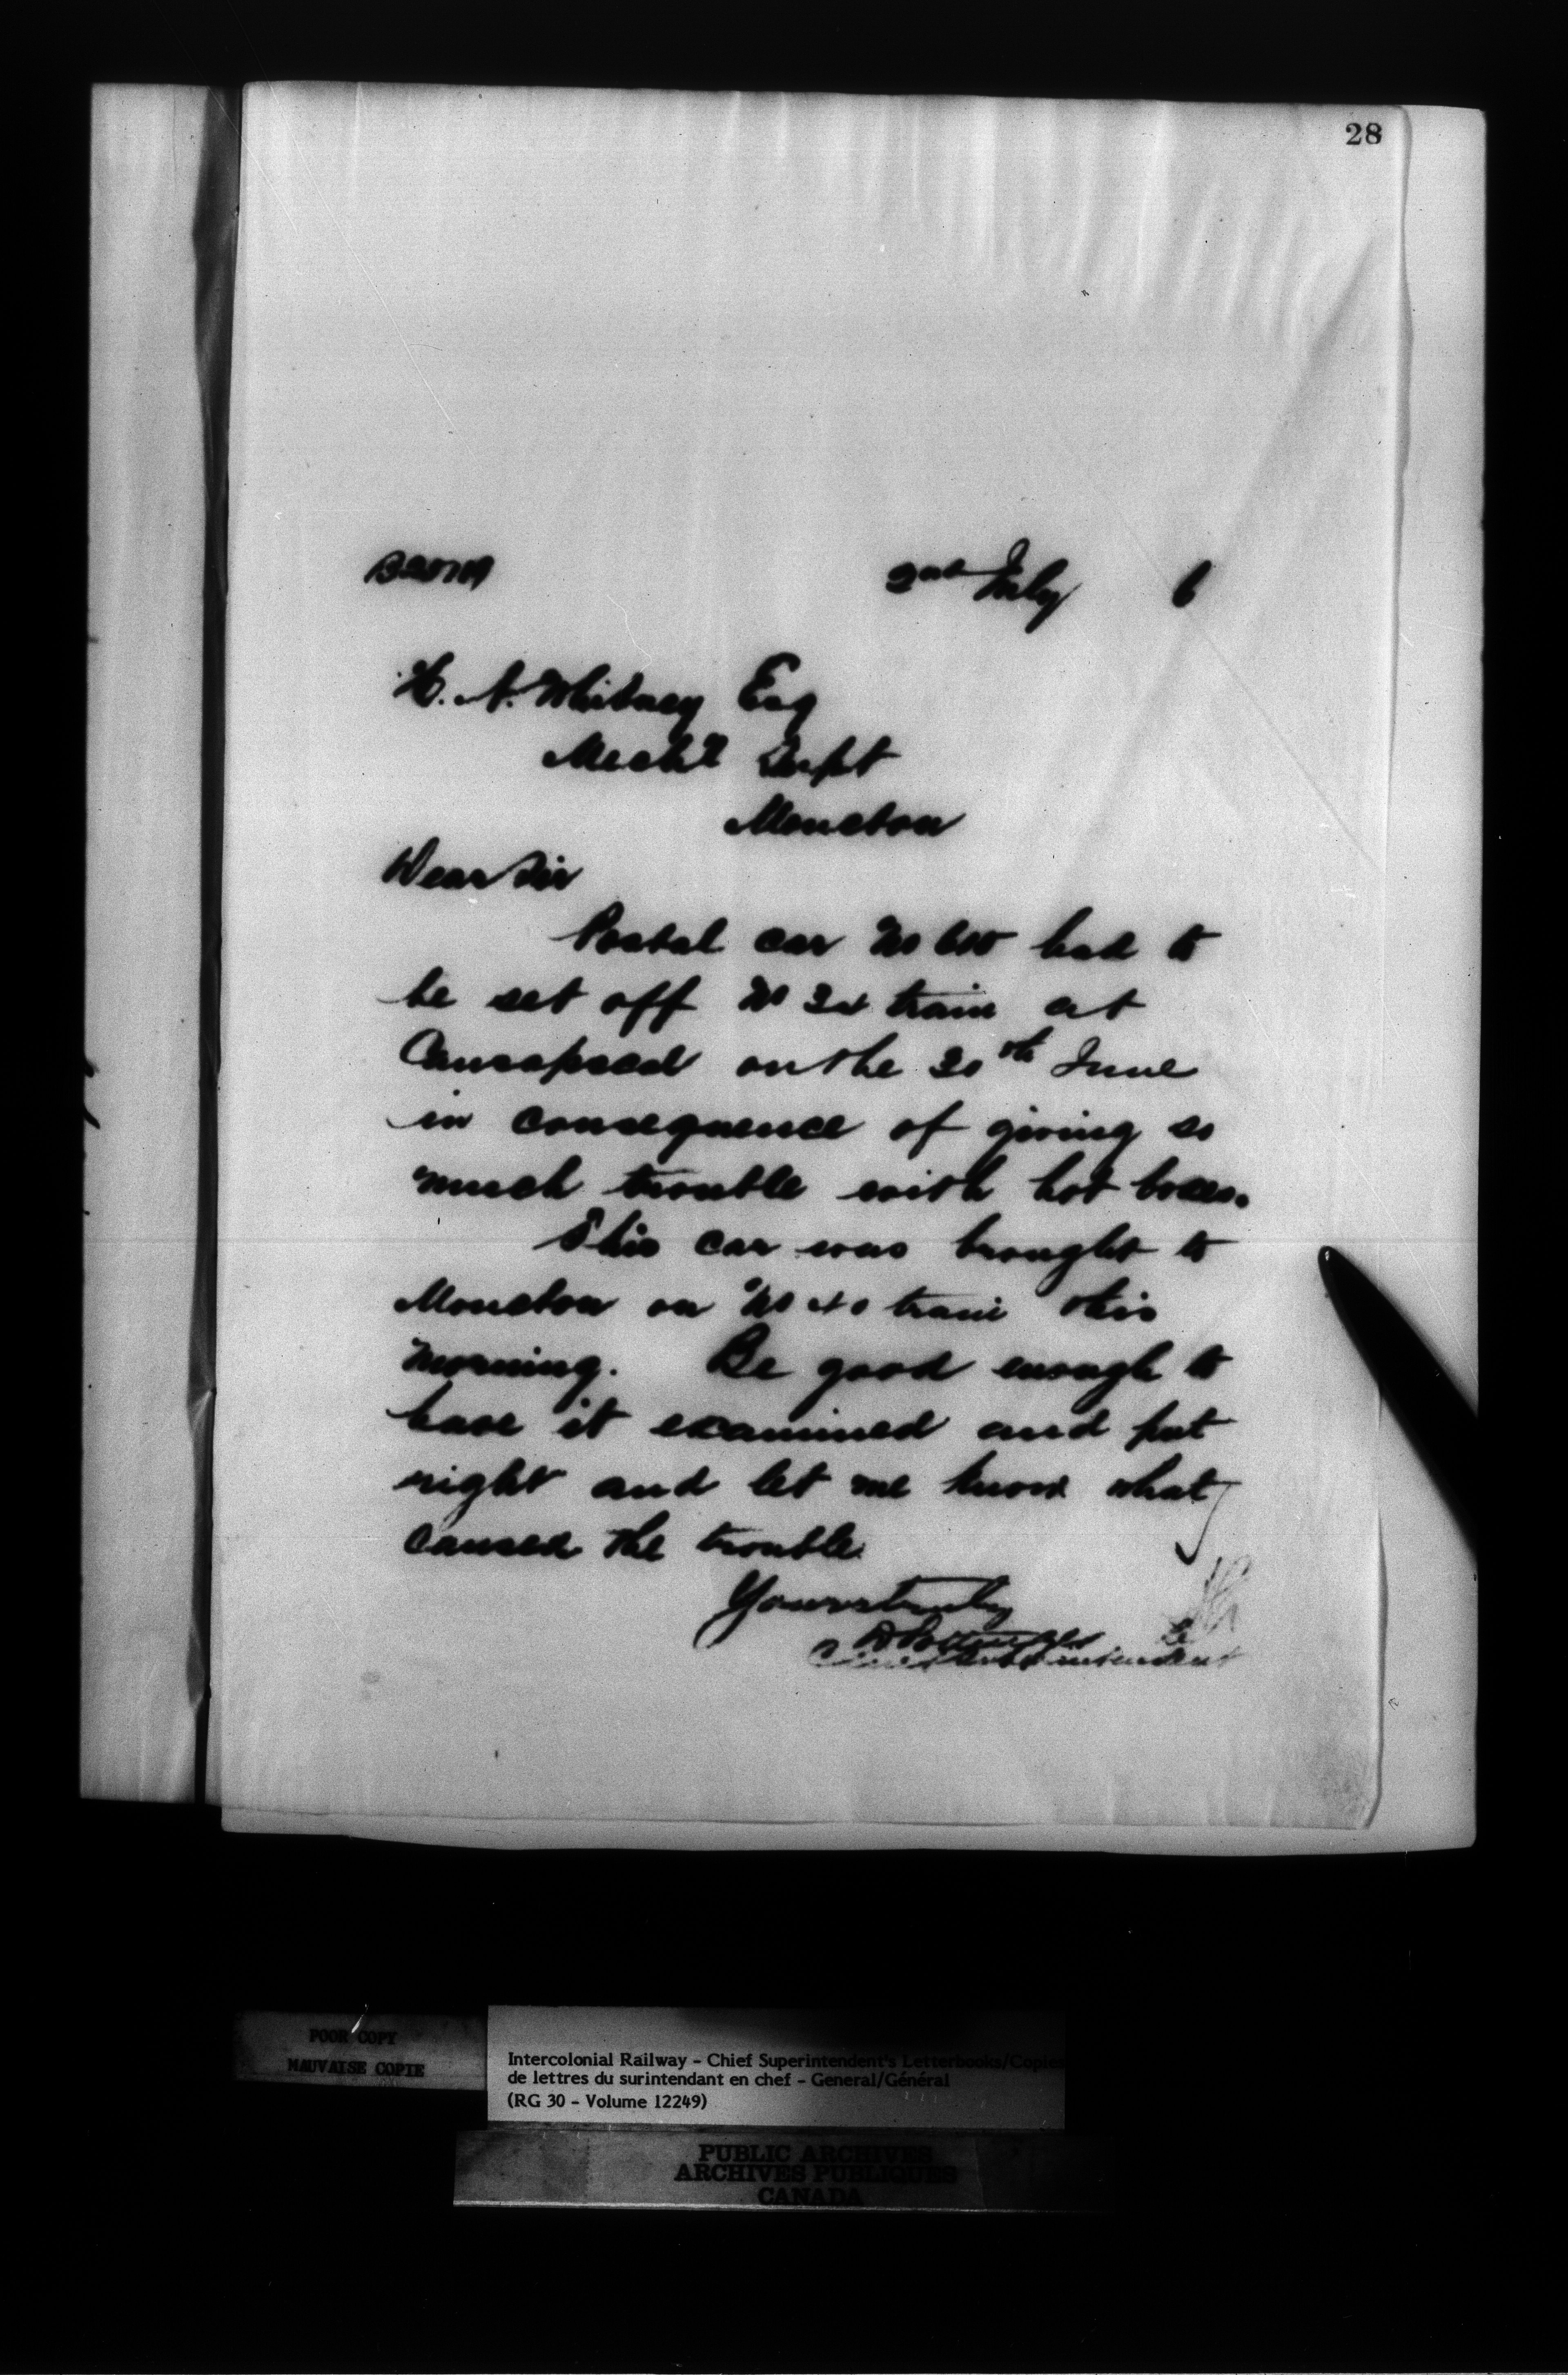 28
2nd July 6
H. A. Whitney Esq
Mechl Supt
Moncton
Dear Sir
Postal car No had to
be set off No 34 train at
Causapscal on the 30th June
in consequence of giving so
much trouble with hot boxes.
This car was brought to
Moncton on No 40 train this
morning. Be good enough to
have it examined and put
right and let me know what
caused the trouble.
Yours truly
D Pottinger
Chief Superintendent
POOR COPY
MAUVAISE COPIE
Intercolonial Railway - Chief Superintendent's Letterbooks/Copies
de lettres du surintendant en chef - General/Général
(RG 30 - Volume 12249)
PUBLIC ARCHIVES
ARCHIVES PUBLIQUES
CANADA